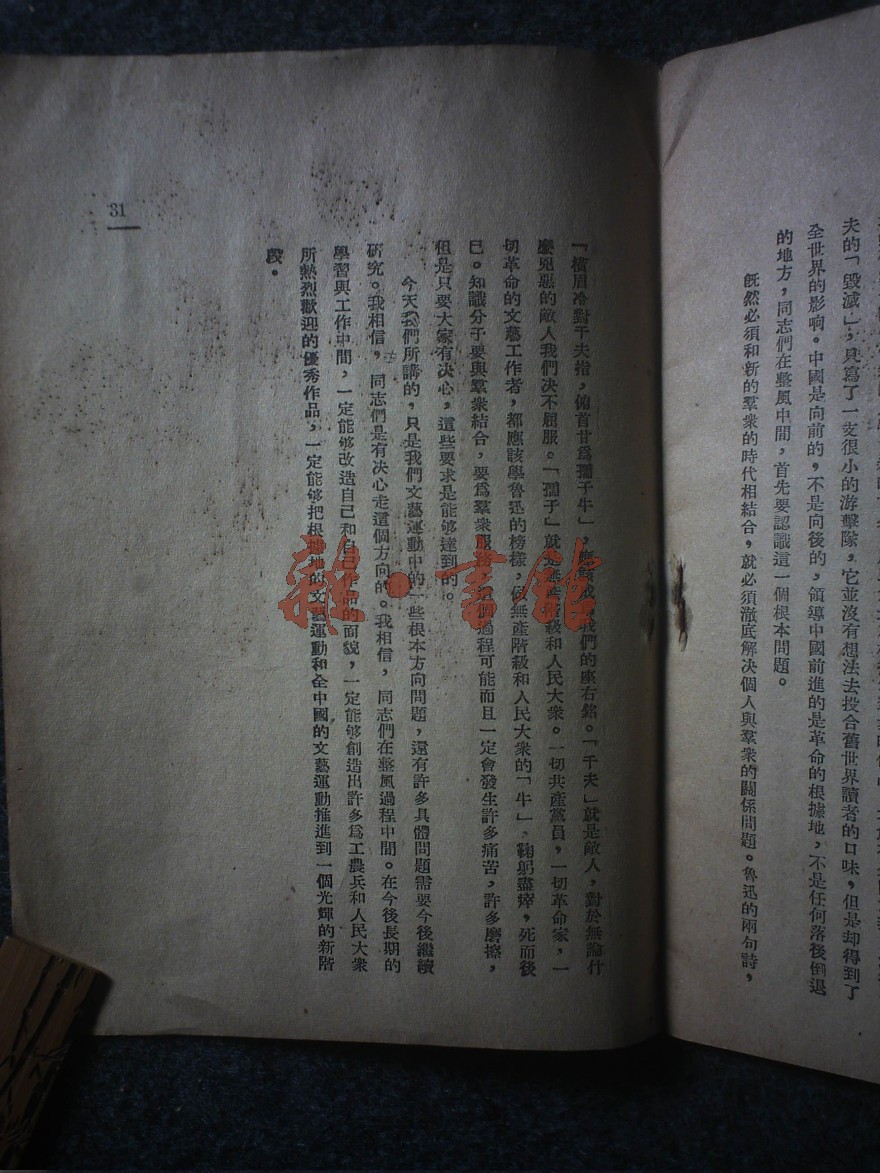 夫的「毀滅」，只寫了一支很小的游擊隊，它並沒有想法去投合舊世界讀者的口味，但是却得到了
全世界的影响。中國是向前的，不是向後的，領導中國前進的是革命的根據地，不是任何落後倒退
的地方，同志們在整風中間，首先要認識這一個根本問題。
既然必須和新的羣衆的時代相結合，就必須澈底解决個人與羣衆的關係問題。魯迅的兩句詩，
「橫眉冷對千夫指，俯首甘爲孺子牛」，應該成爲我們的座右銘。「千夫」就是敵人，對於無論什
麼兇惡的敵人我們决不屈服。「孺子」就是無產階級和人民大衆。一切共產黨員，一切革命家，一
切革命的文藝工作者，都應該學魯迅的榜樣，做無產階級和人民大衆的「牛」，鞠躬盡瘁，死而後
已。知識分子要與羣衆結合，要爲羣衆服務，這個過程可能而且一定會發生許多痛苦，許多磨擦，
但是只要大家有决心，這些要求是能够達到的。
今天我們所講的，只是我們文藝運動中的一些根本方向問題，還有許多具體問題需要今後繼續
研究。我相信，同志們是有决心走這個方向的。我相信，同志們在整風過程中間。在今後長期的
學習與工作中間，一定能够改造自己和自己作品的面貌，一定能够創造出許多爲工農兵和人民大衆
所熱烈歡迎的優秀作品，一定能够把根據地的文藝運動和全中國的文藝運動推進到一個光輝的新階
段。
31
雜·書館